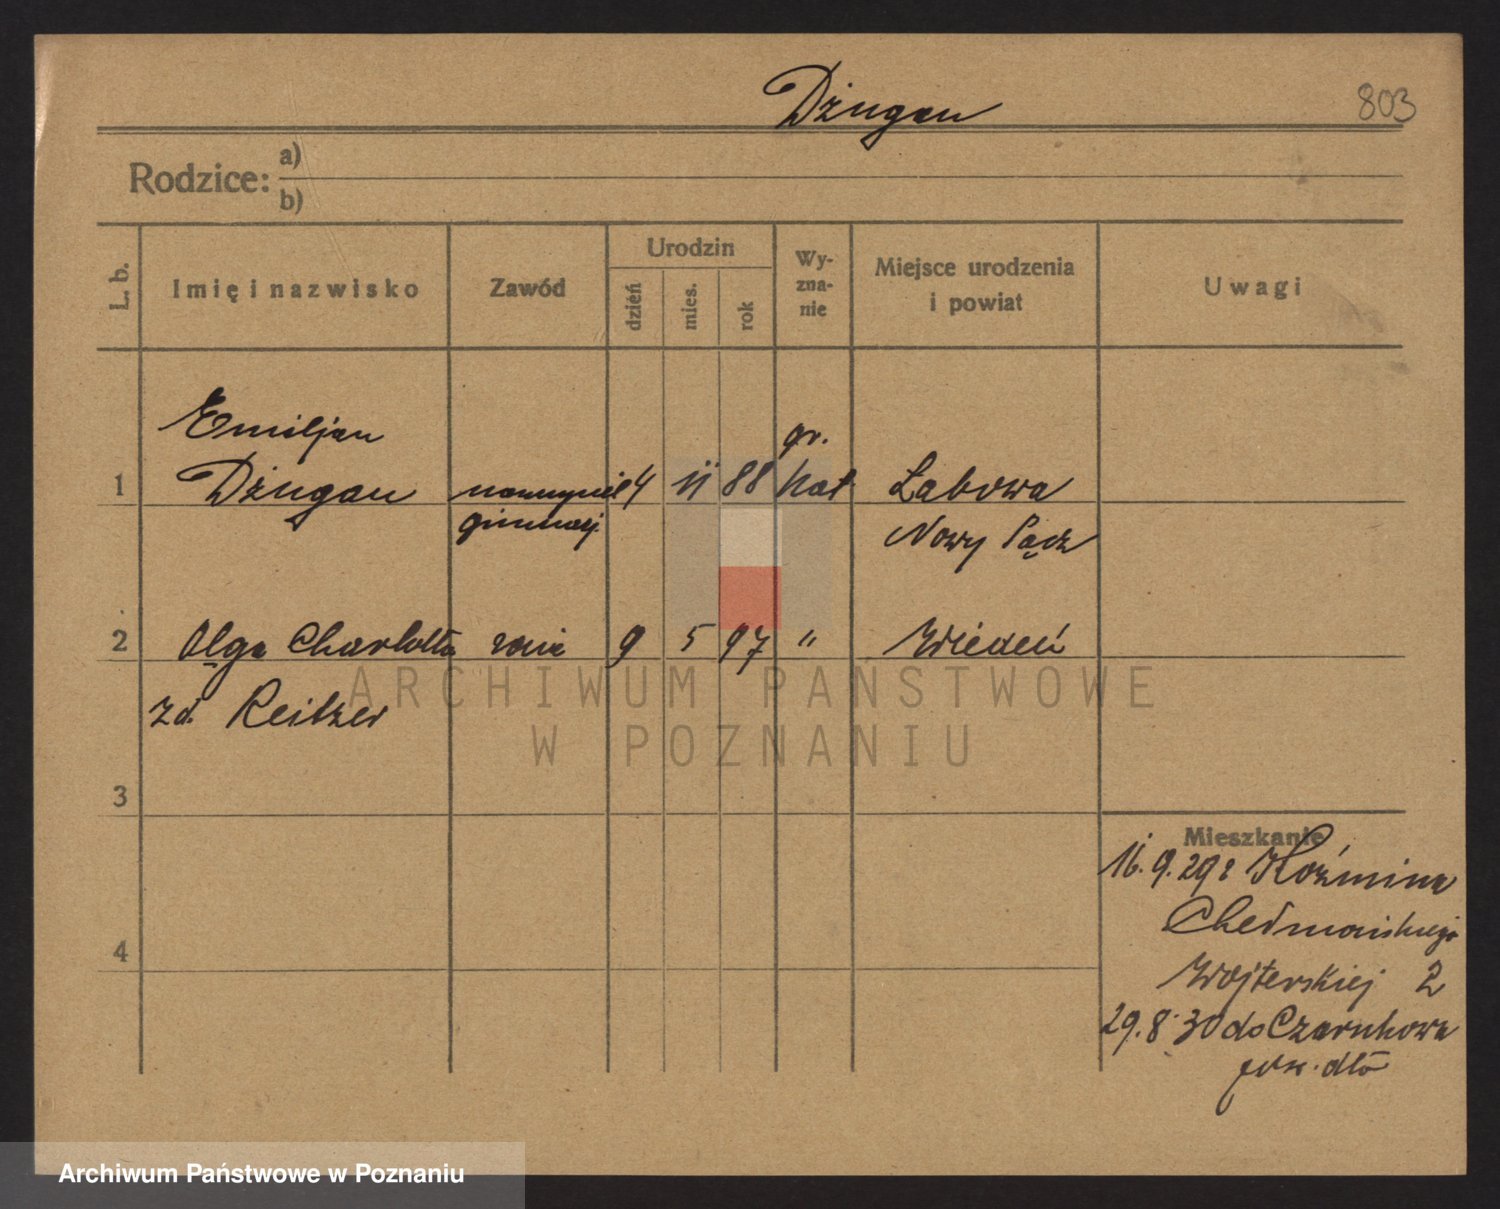 Dżugan
803
Rodzice: a)
b)
L. b. Imię i nazwisko Zawód Urodzin dzień mies. rok Wy-zna-nie Miejsce urodzenia i powiat Uwagi
Emiljan gr.
1 Dżugan 4 11 88 kat Łabowa
gimnazj. Nowy Sącz
2 Olga Charlotta 9 5 97 " Wiedeń
zd. Reitzer
3
Mieszkanie
16.9.29 z Koźmina
4
29.8.30 do Czarnkowa
ARCHIWUM PAŃSTWOWE
W POZNANIU
Archiwum Państwowe w Poznaniu